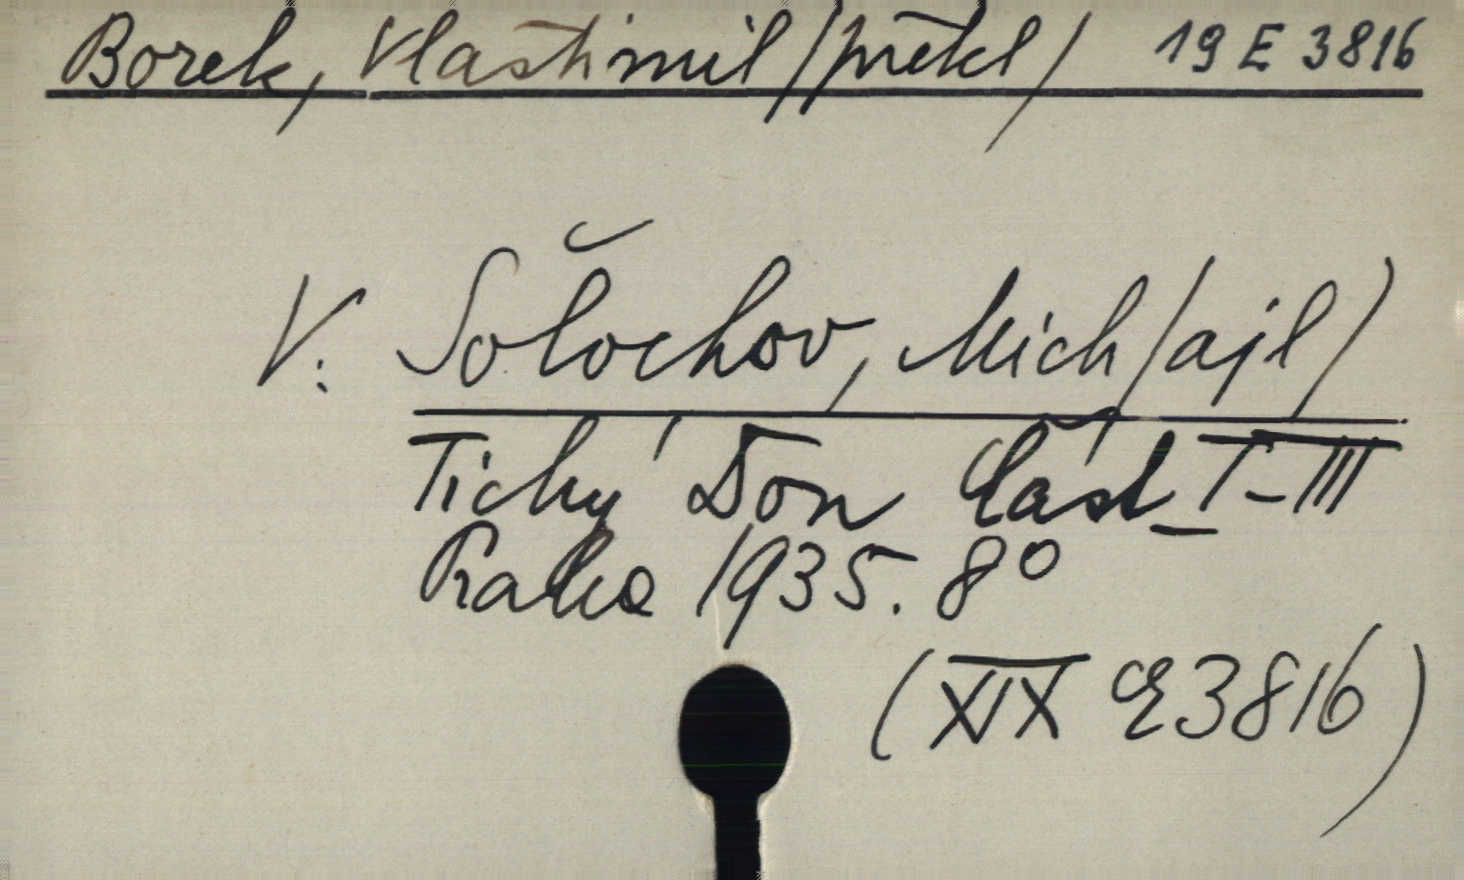 Borek, Vlastimil /překl/ 19 E 3816
V. Šolochov, Mich/ajl/
Tichý Don Část I-III
Praha 1935. 8°
(XIX E 3816)